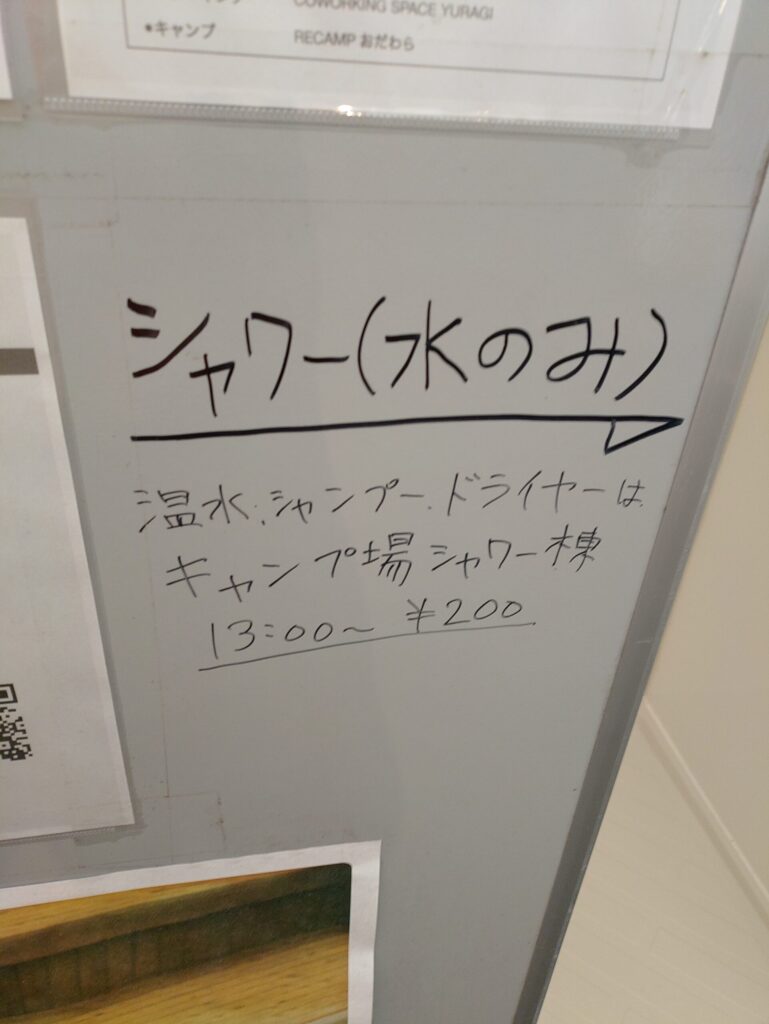 COWORKING SPACE YURAGI
•キャンプ RECAMP おだわら
シャワー(水のみ)
温水、シャンプー、ドライヤーは
キャンプ場シャワー棟
13:00~ ¥200